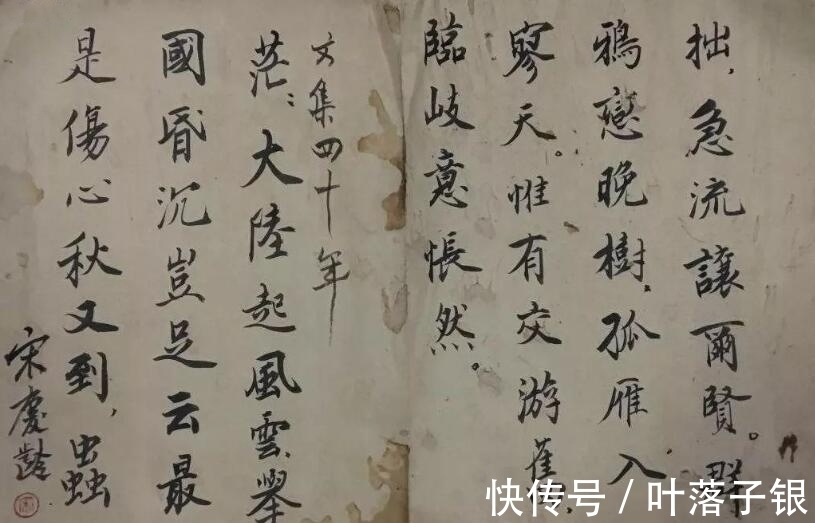 拙，急流讓爾賢。群
鴉戀晚樹，孤雁入
寥天。惟有交游舊，
臨歧意悵然。
文集四十年
茫：大陸起風雲，舉
國昏沉豈足云最
是傷心秋又到，蟲
宋慶齡
快传号 / 叶落子银